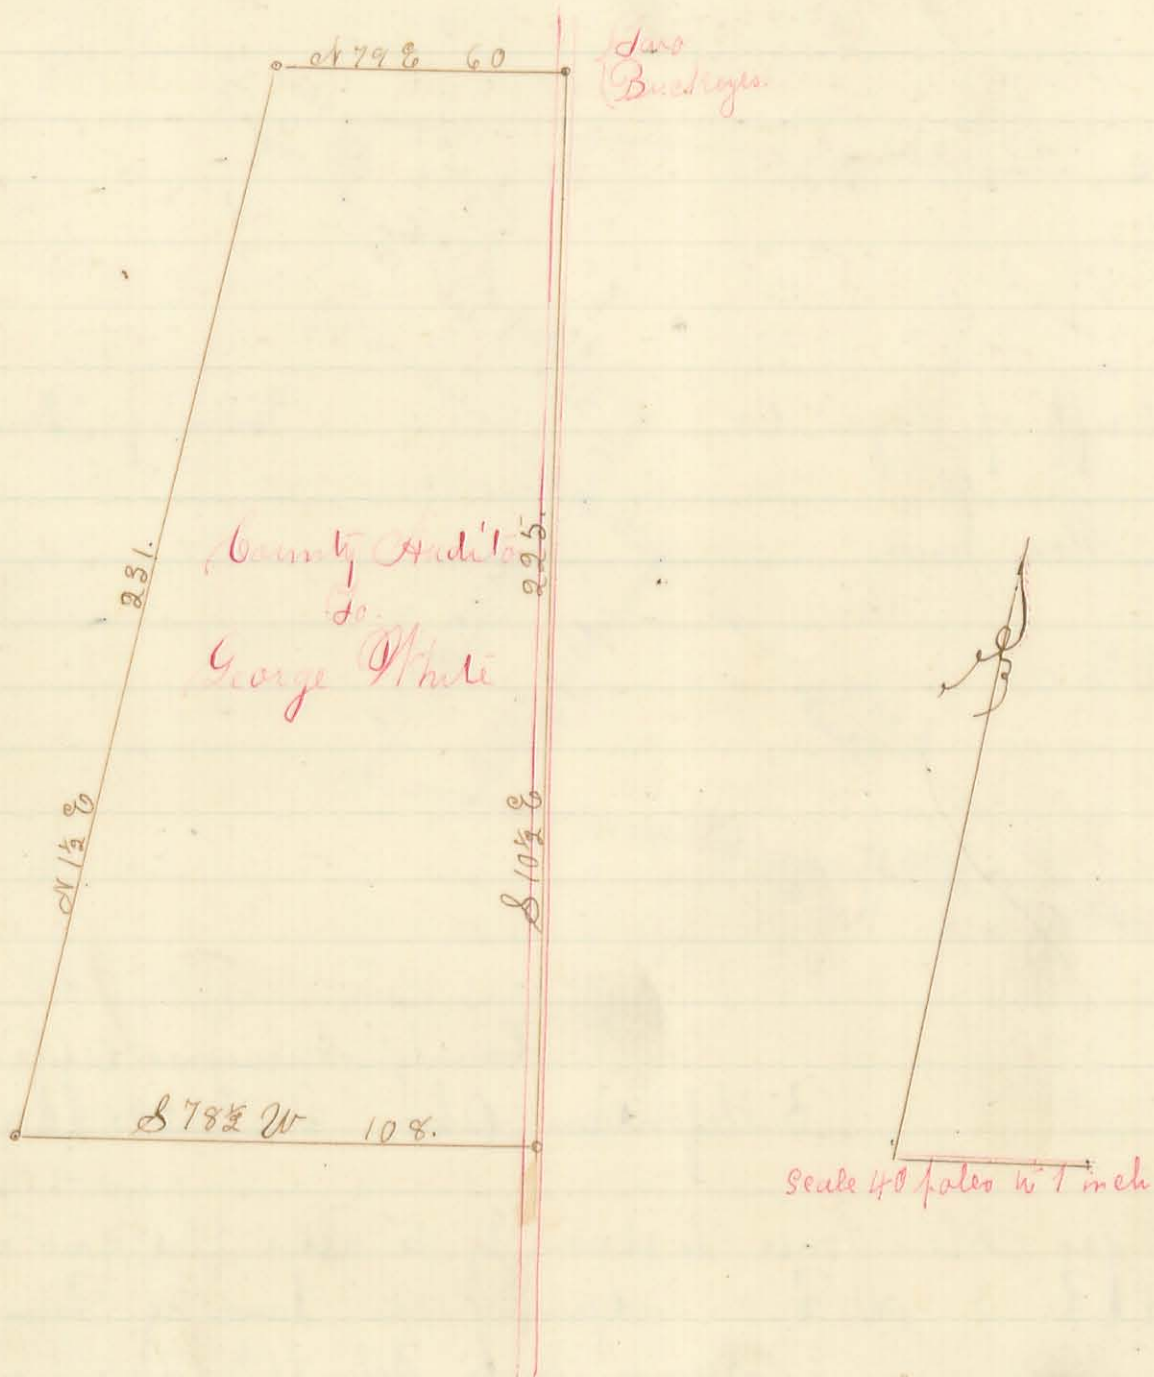 N 79 E 60
Two
Buckeyes.
231.
225.
County Auditor
To.
George White
N 1½ E
S 10½ E
S 78½ W 108.
Scale 40 poles to 1 inch